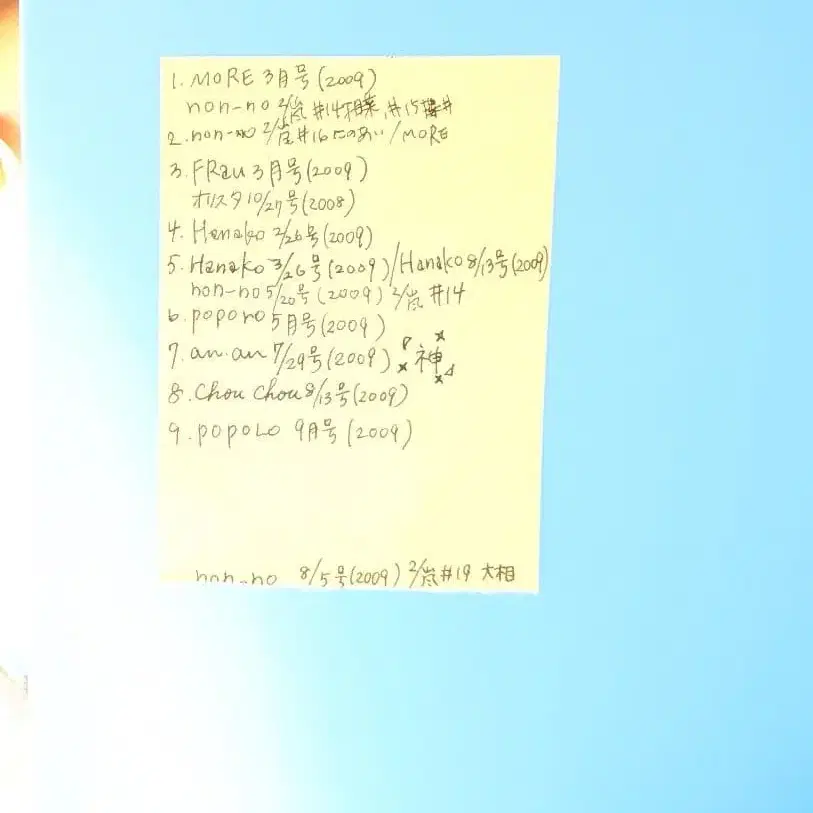 1. MORE 3月号(2009)
non-no 2/嵐 #14 相葉, #15 櫻井
2. non-no 2/嵐 #16 にのあい/MORE
3. FRau 3月号(2009)
オリスタ 10/27号(2008)
4. Hanako 2/26号(2009)
5. Hanako 3/26号(2009)/Hanako 8/13号(2009)
non-no 5/20号(2009) 2/嵐 #14
6. poporo 5月号(2009)
7. an・an 7/29号(2009) 神
8. Chou Chou 8/13号(2009)
9. POPOLO 9月号(2009)
non-no 8/5号(2009) 2/嵐 #19 大相